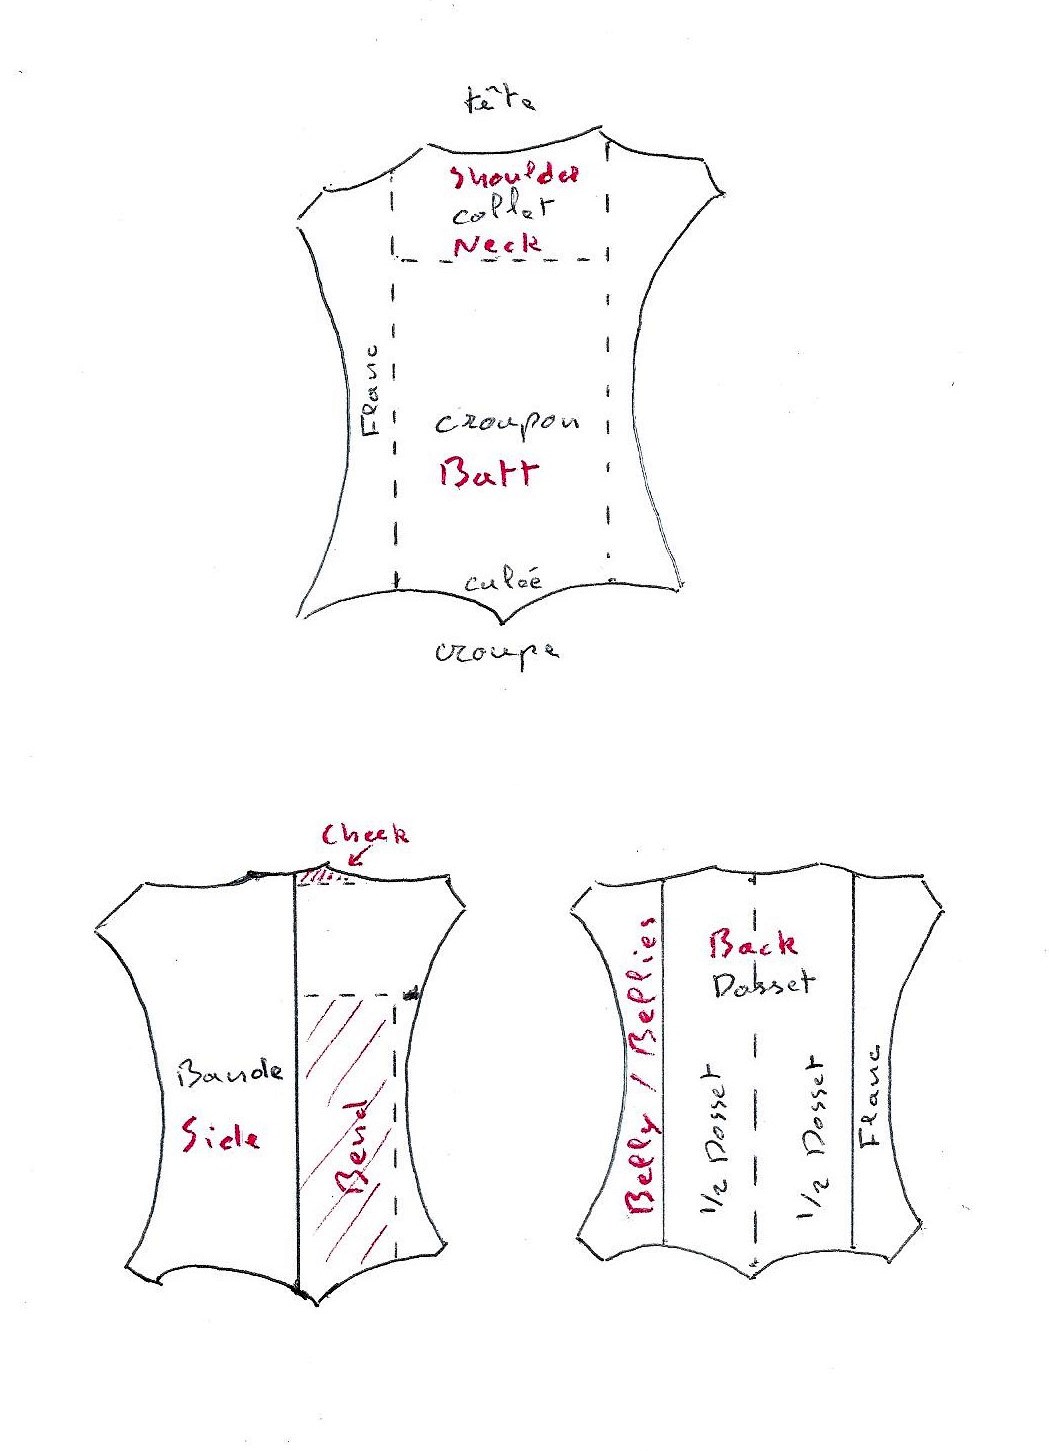 tête
Shoulder
collet
Neck
Flanc
croupon
Butt
culée
croupe
Cheek
Bande
Side
Bend
Belly / Bellies
Back
Dosset
1/2 Dosset
1/2 Dosset
Flanc